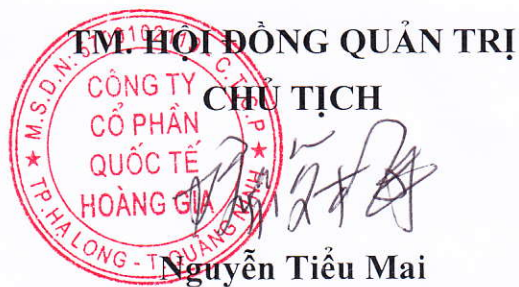 TM. HỘI ĐỒNG QUẢN TRỊ
CHỦ TỊCH
CÔNG TY
CỔ PHẦN
QUỐC TẾ
HOÀNG GIA
TP. HẠ LONG - T. QUẢNG NINH
Nguyễn Tiểu Mai